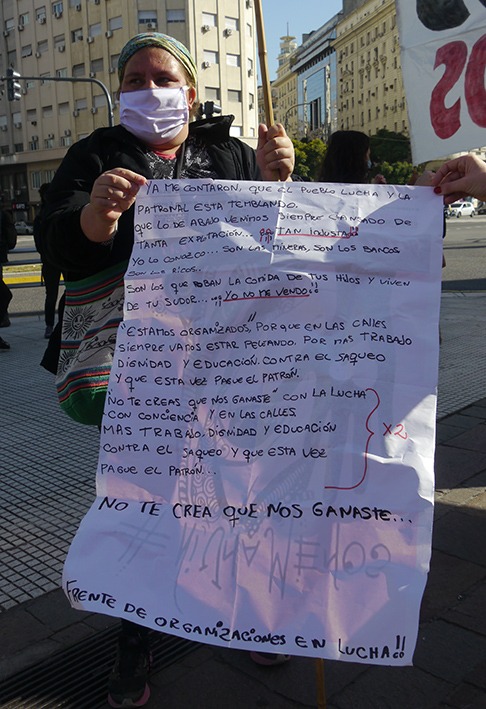 YA ME CONTARON, QUE EL PUEBLO LUCHA Y LA
PATRONAL ESTA TEMBLANDO.
QUE LO DE ABAJO VENIMOS SIEMPRE CANSADO DE
TANTA EXPLOTACIÓN... ¡¡¡TAN INJUSTA!!!
YO LO CONOZCO... SON LAS MINERAS, SON LOS BANCOS
SON LOS RICOS..
SON LOS QUE ROBAN LA COMIDA DE TUS HIJOS Y VIVEN
DE TU SUDOR.... ¡¡YO NO ME VENDO!!
"ESTAMOS ORGANIZADOS", PORQUE EN LAS CALLES
SIEMPRE VAMOS ESTAR PELEANDO. POR MAS TRABAJO
DIGNIDAD Y EDUCACIÓN. CONTRA EL SAQUEO
Y QUE ESTA VEZ PAGUE EL PATRÓN.
NO TE CREAS QUE NOS GANASTE" CON LA LUCHA
CON CONCIENCIA Y EN LAS CALLES
MAS TRABAJO, DIGNIDAD Y EDUCACIÓN
CONTRA EL SAQUEO Y QUE ESTA VEZ
PAGUE EL PATRÓN...
X2
NO TE CREA QUE NOS GANASTE...
FRENTE DE ORGANIZACIONES EN LUCHA!!
OS